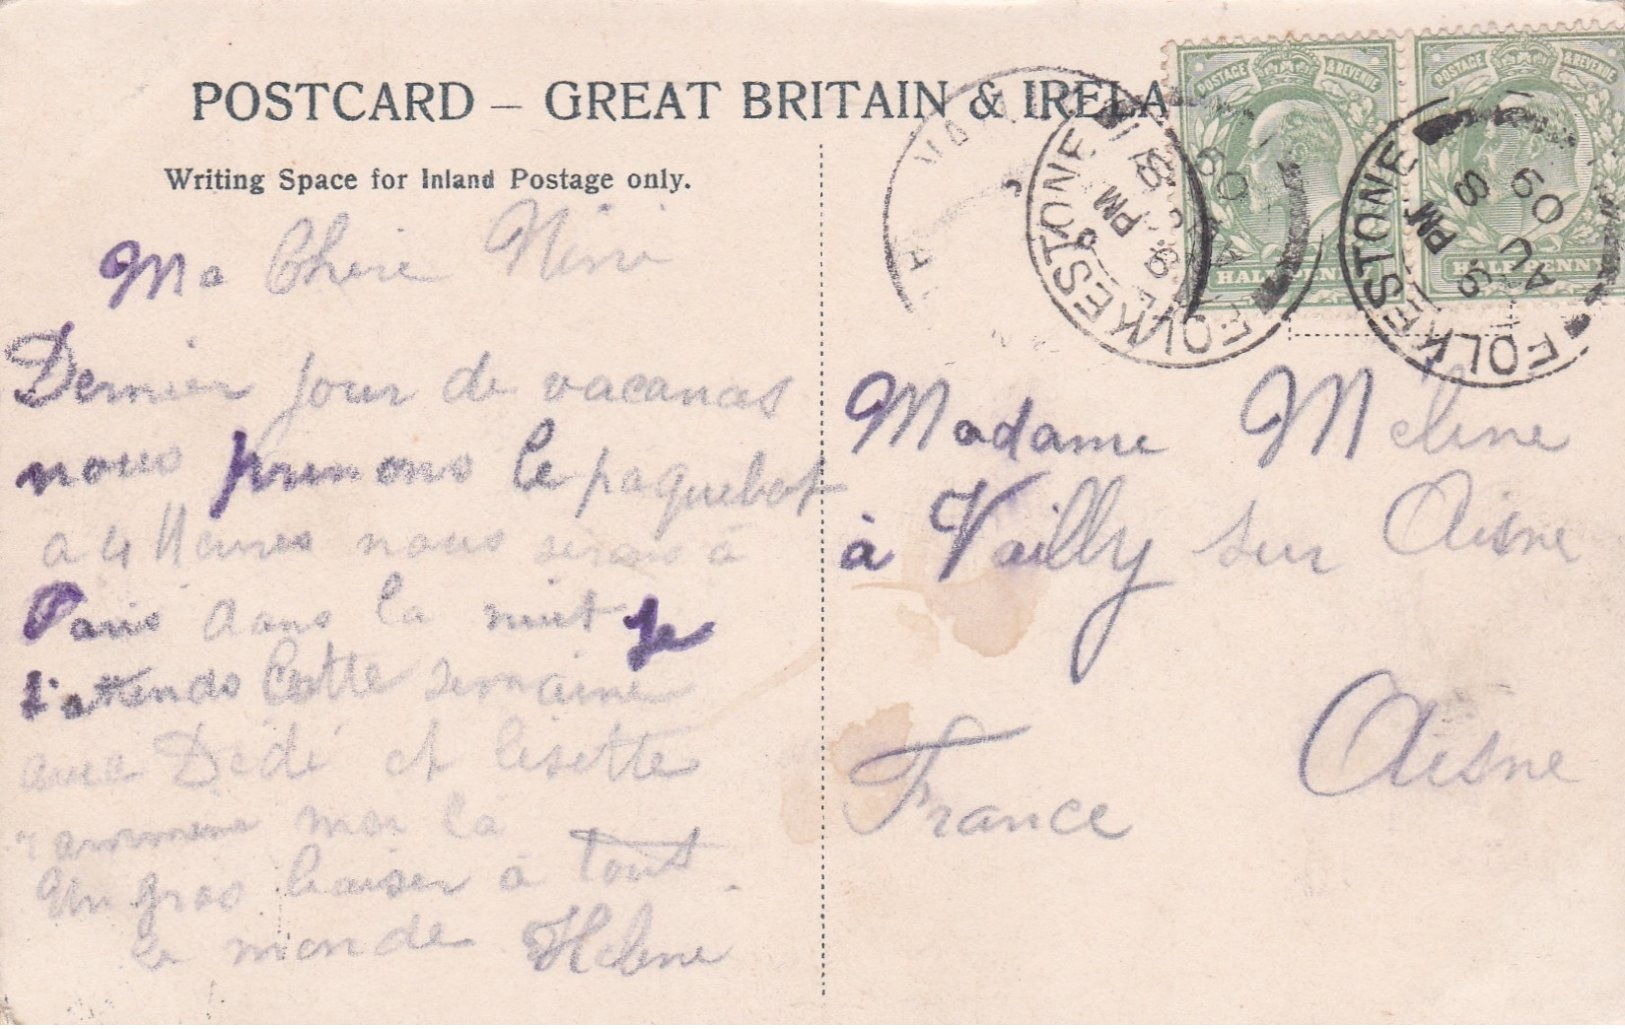 POSTCARD – GREAT BRITAIN & IRELA
Writing Space for Inland Postage only.
POSTAGE & REVENUE
POSTAGE & REVENUE
HALFPENNY
HALFPENNY
FOLKESTONE
8 PM
AU 9
09
FOLKESTONE
8 PM
AU 9
09
Ma Chere Nini
Dernier jour de vacances
nous prenons le paquebot
a 4 Heures nous serons à
Paris dans la nuit je
t'attends Cette semaine
avec Dédé et lisette
rammène moi la
Un gros baiser à tout
le monde Helene
Madame Melene
à Vailly sur Aisne
Aisne
France